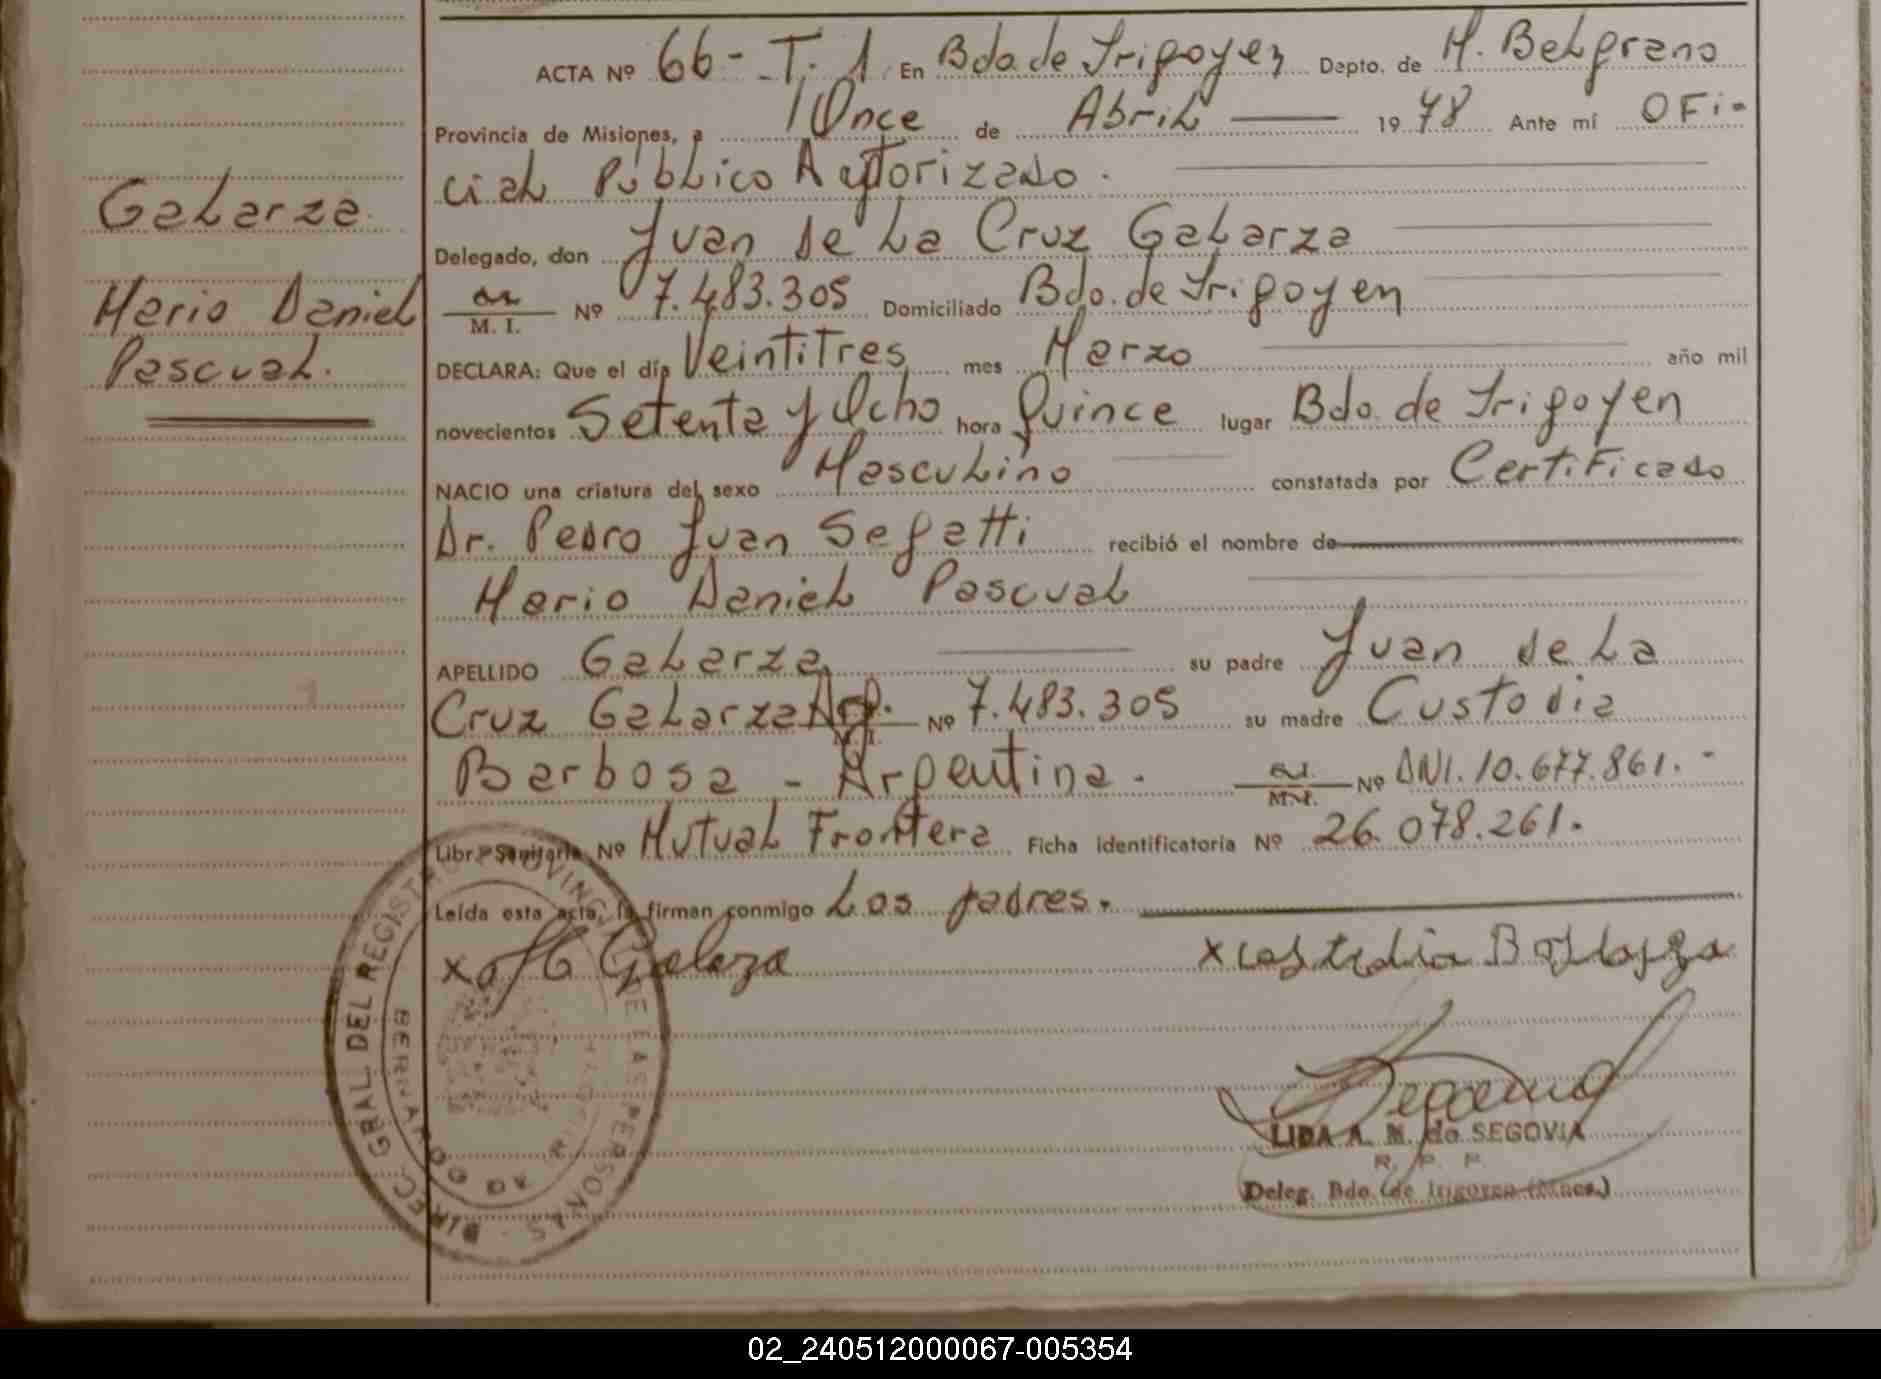 ACTA Nº 66 - T. 1 En Bdo. de Irigoyen Depto. de M. Belgrano
Provincia de Misiones, a Once de Abril 1978 Ante mí Ofi-
cial Público Autorizado.
Delegado, don Juan de La Cruz Galarza
M. I. Nº 7.483.305 Domiciliado Bdo. de Irigoyen
DECLARA: Que el día Veintitres mes Marzo año mil
novecientos Setenta y Ocho hora Quince lugar Bdo. de Irigoyen
NACIO una criatura del sexo Masculino constatada por Certificado
Dr. Pedro Juan Segatti recibió el nombre de
Mario Daniel Pascual
APELLIDO Galarza su padre Juan de La
Cruz Galarza Arg. M. I. Nº 7.483.305 su madre Custodia
Barbosa - Argentina. M. I. Nº DNI. 10.677.861. -
Libr. Sanitaria Nº Mutual Frontera Ficha identificatoria Nº 26.078.261.
Leída esta acta, la firman conmigo Los padres.
Galarza
Mario Daniel
Pascual.
x Galarza
x
LIDA A. M. de SEGOVIA
R. P. P.
Deleg. Bdo. de Irigoyen (Mnes.)
DIREC. GRAL. DEL REGISTRO PROVINCIAL DE LAS PERSONAS
BERNARDO DE IRIGOYEN
02_240512000067-005354